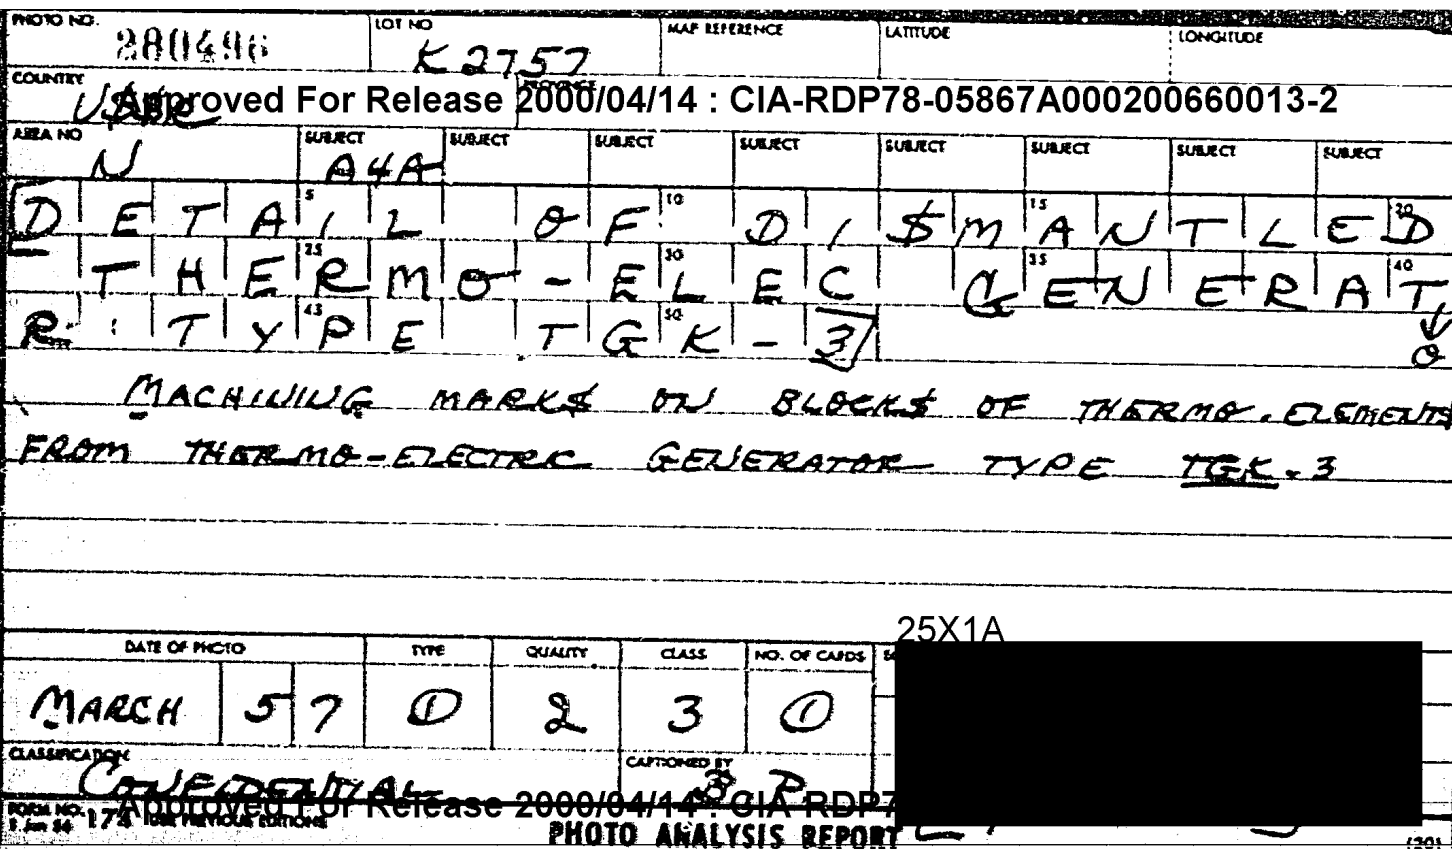 PHOTO NO. LOT NO MAP REFERENCE LATITUDE LONGITUDE
280496 K2757
COUNTRY
USSR Approved For Release 2000/04/14 : CIA-RDP78-05867A000200660013-2
AREA NO SUBJECT SUBJECT SUBJECT SUBJECT SUBJECT SUBJECT SUBJECT SUBJECT
N A4A
5 10 15 20
DETAIL OF DISMANTLED
25 30 35 40
THERMO-ELEC GENERAT
45 50
R: TYPE TGK-3 O
MACHINING MARKS ON BLOCKS OF THERMO-ELEMENTS
FROM THERMO-ELECTRIC GENERATOR TYPE TGK-3
25X1A
DATE OF PHOTO TYPE QUALITY CLASS NO. OF CARDS
MARCH 57 1 2 3 1
CLASSIFICATION CAPTIONED BY
CONFIDENTIAL
Approved For Release 2000/04/14 : CIA-RDP7
FORM NO. 174 USE PREVIOUS EDITIONS
PHOTO ANALYSIS REPORT (20)